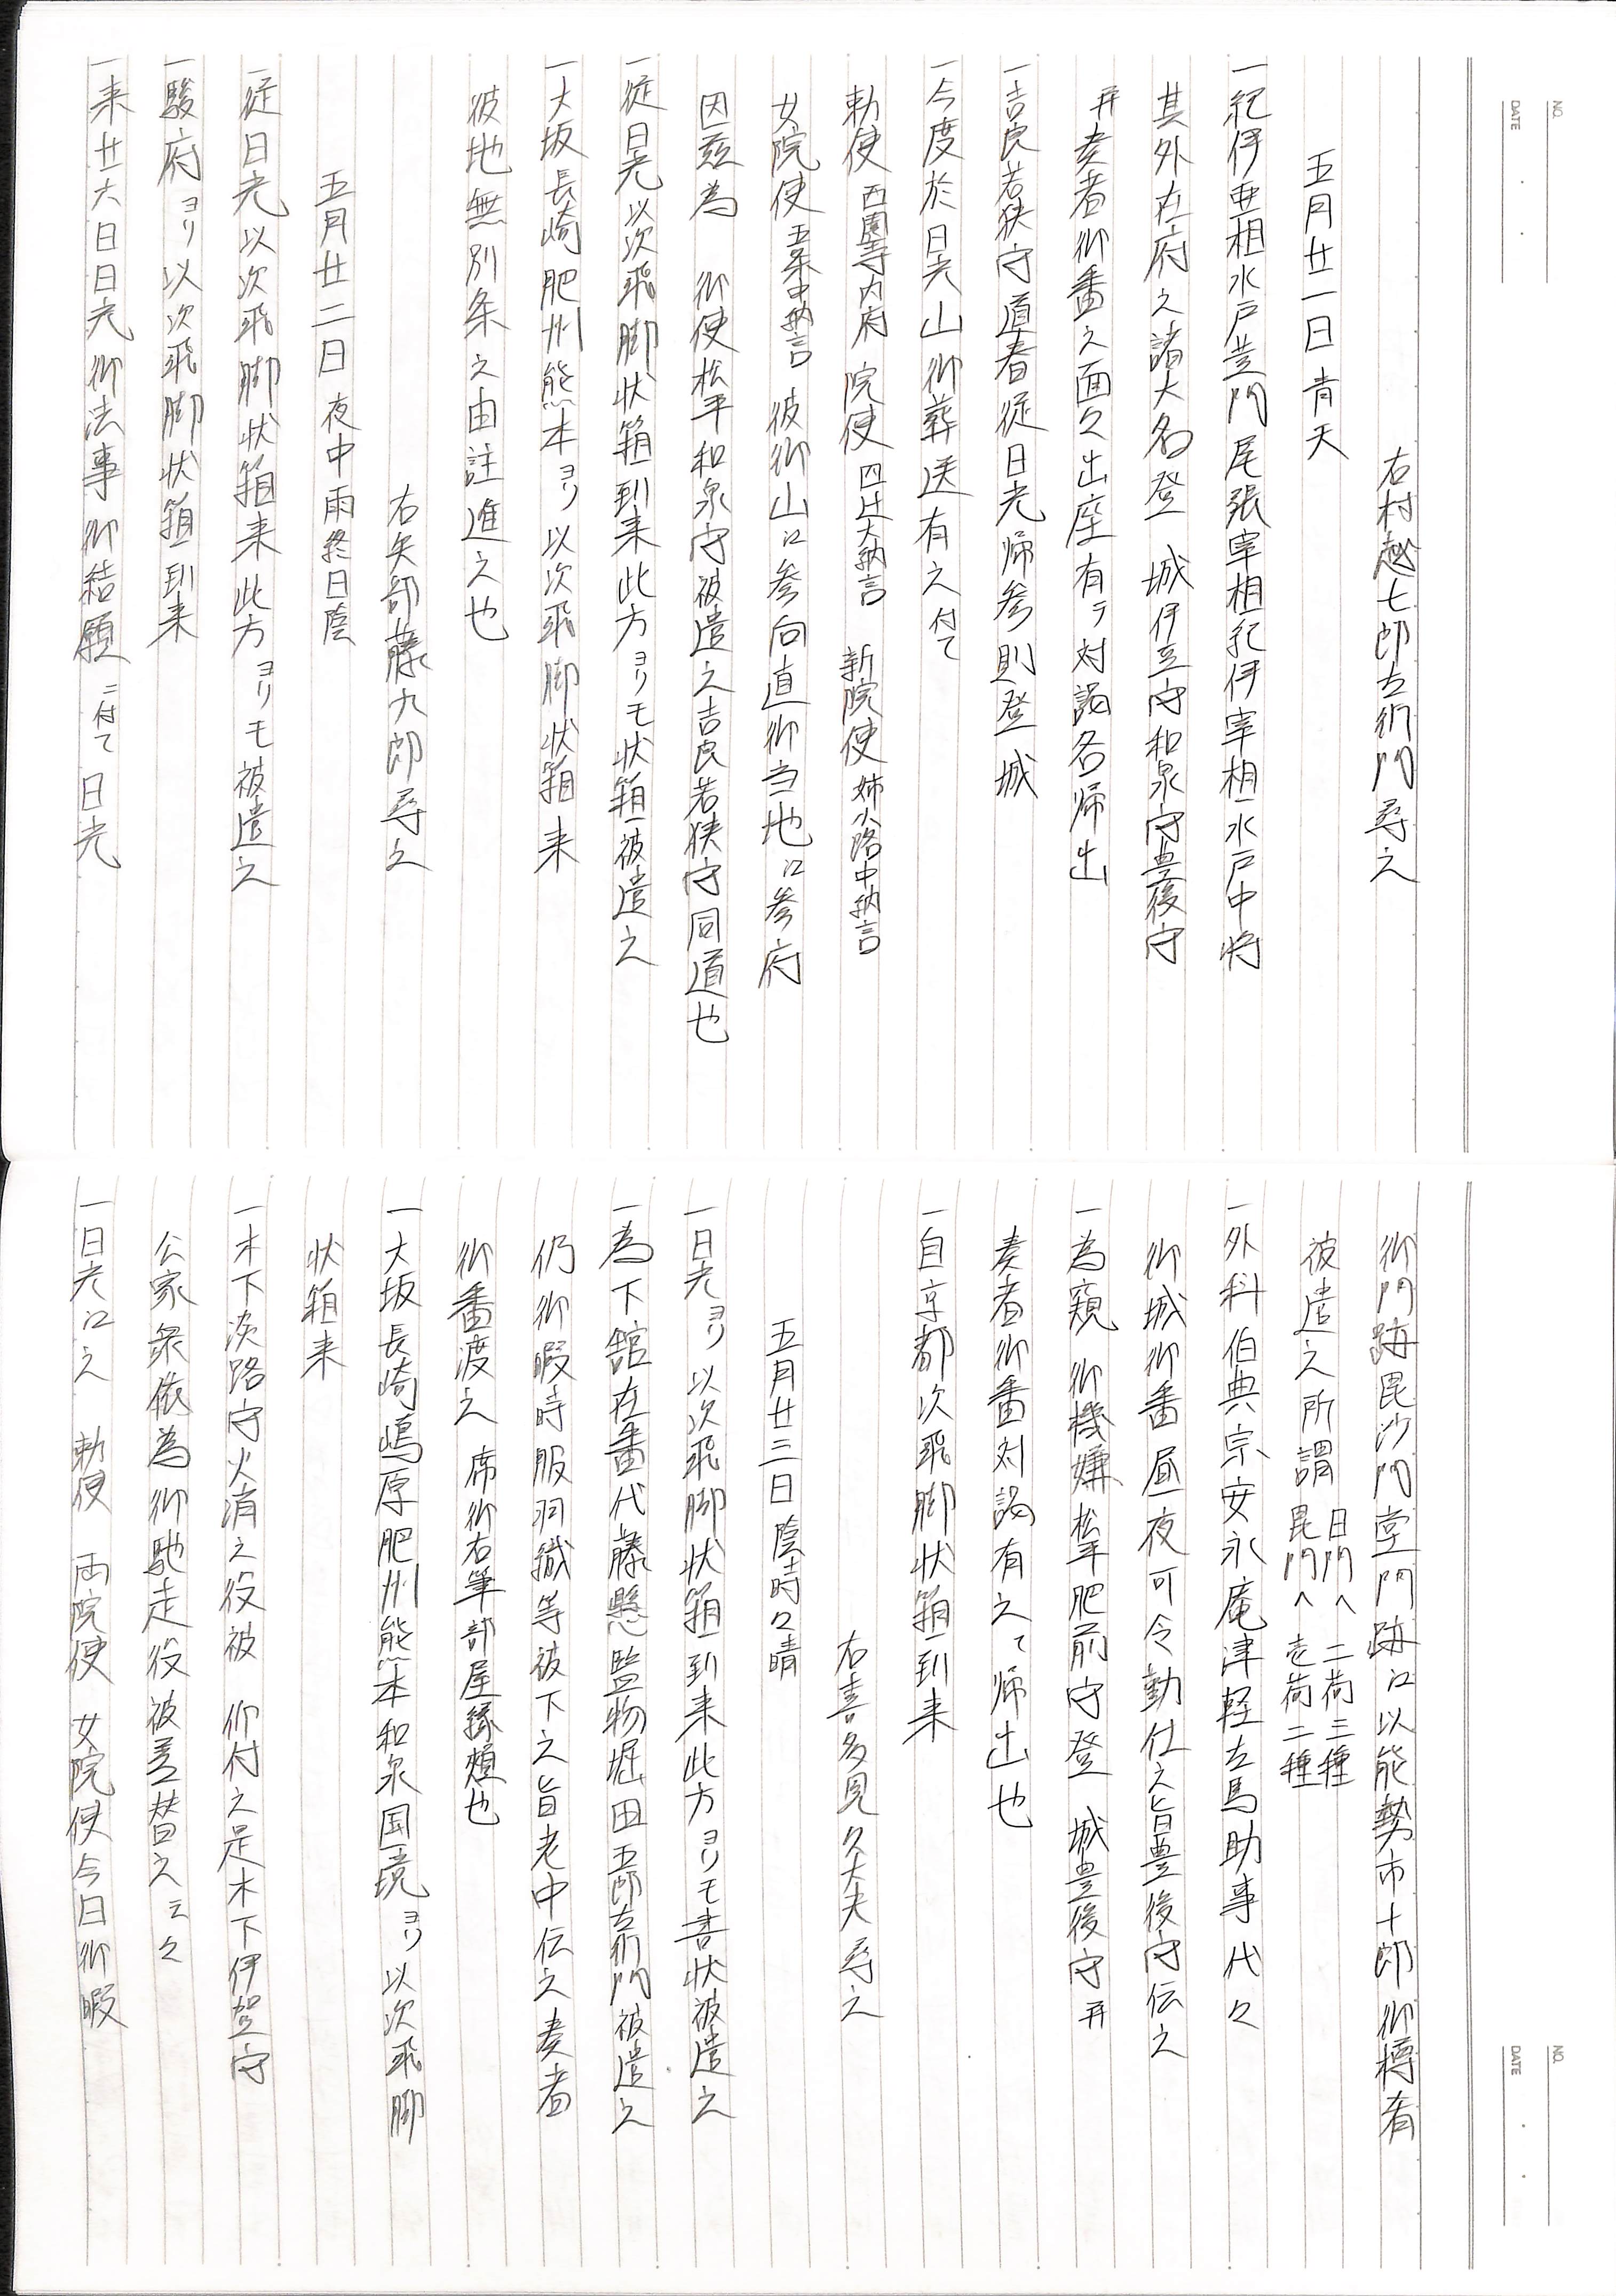 NO.
DATE
右村越七郎左衛門尋之
五月廿一日 青天
一紀伊亜相水戸黄門尾張宰相紀伊宰相水戸中将
其外在府之諸大名登 城伊豆守和泉守豊後守
并奏者御番之面々出座有テ対謁各帰出
一吉良若狭守道春従日光帰参則登 城
一今度於日光山御葬送有之付て
勅使 西園寺内府 院使 四辻大納言 新院使 姉小路中納言
女院使 五条中納言 彼御山江参向直御当地江参府
因茲為 御使松平和泉守被遣之吉良若狭守同道也
一従日光以次飛脚状箱到来此方ヨリモ状箱被遣之
一大坂長崎肥州熊本ヨリ以次飛脚状箱来
彼地無別条之由註進之也
右矢部藤九郎尋之
五月廿二日 夜中雨終日陰
一従日光以次飛脚状箱来此方ヨリモ被遣之
一駿府ヨリ以次飛脚状箱到来
一来廿六日日光御法事御結願ニ付て日光
NO.
DATE
御門跡毘沙門堂門跡江以能勢市十郎御樽肴
被遣之所謂 日門へ 二荷三種
毘門へ 壱荷二種
一外科伯典宗安永庵津軽左馬助事代々
御城御番昼夜可令勤仕之旨豊後守伝之
一為窺 御機嫌松平肥前守登 城豊後守并
奏者御番対謁有之て帰出也
一自京都次飛脚状箱到来
右喜多見久大夫尋之
五月廿三日 陰時々晴
一日光ヨリ以次飛脚状箱到来此方ヨリモ書状被遣之
一為下館在番代藤懸監物堀田五郎左衛門被遣之
仍御暇時服羽織等被下之旨老中伝之奏者
御番渡之 席御右筆部屋縁頬也
一大坂長崎嶋原肥州熊本和泉国境ヨリ以次飛脚
状箱来
一木下淡路守火消之役被 仰付之是木下伊賀守
公家衆依為御馳走役被差替之云々
一日光江之 勅使 両院使 女院使今日御暇